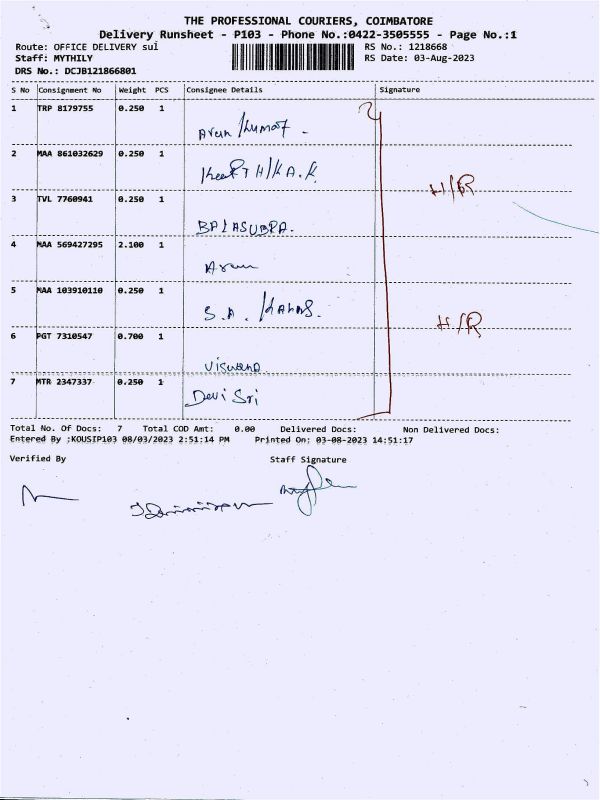 THE PROFESSIONAL COURIERS, COIMBATORE
Delivery Runsheet - P103 - Phone No.:0422-3505555 - Page No.:1
Route: OFFICE DELIVERY sul
RS No.: 1218668
Staff: MYTHILY
RS Date: 03-Aug-2023
DRS No.: DCJB121866801
S No Consignment No Weight PCS Consignee Details Signature
1 TRP 8179755 0.250 1
Arun Kumar
2 MAA 861032629 0.250 1
KeeRTHIKA.K
H/R
3 TVL 7760941 0.250 1
BALASUBRA.
4 MAA 569427295 2.100 1
Arun
5 MAA 103910110 0.250 1
S.A.
H/R
6 PGT 7310547 0.700 1
7 MTR 2347337 0.250 1
Devi Sri
Total No. Of Docs: 7 Total COD Amt: 0.00 Delivered Docs: Non Delivered Docs:
Entered By ;KOUSIP103 08/03/2023 2:51:14 PM Printed On: 03-08-2023 14:51:17
Verified By Staff Signature